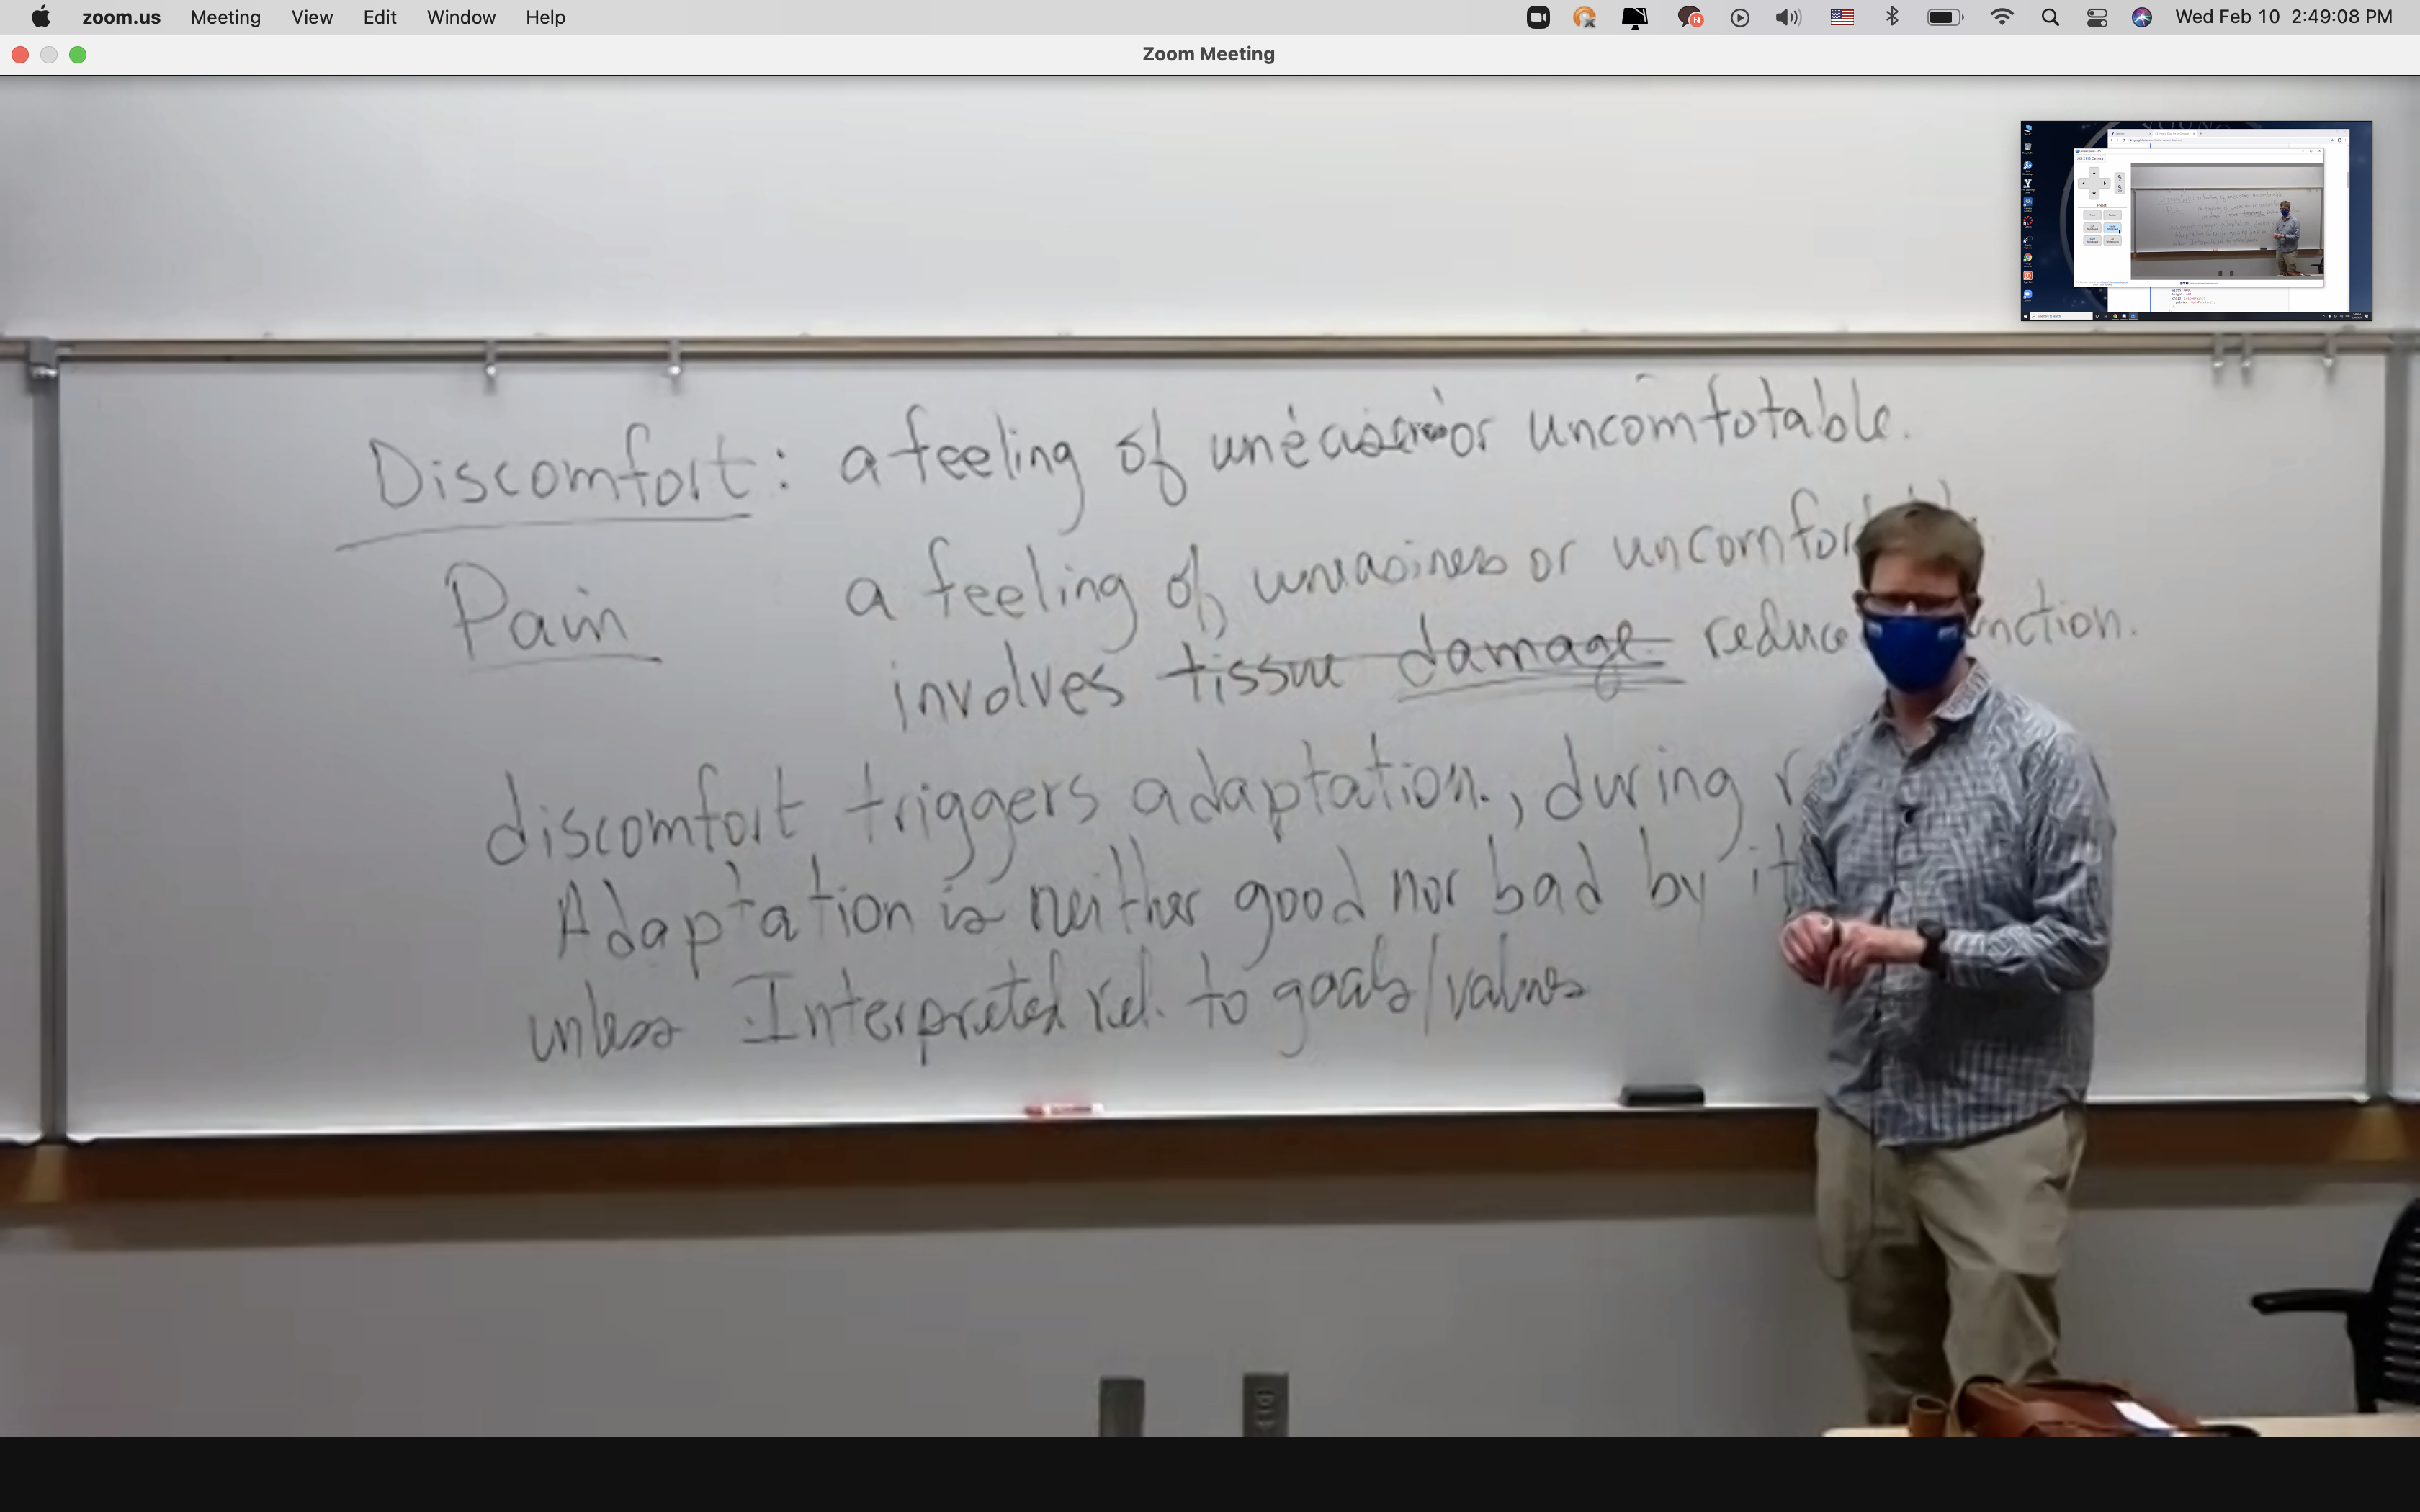 zoom.us Meeting View Edit Window Help Wed Feb 10 2:49:08 PM
Zoom Meeting
Discomfort: a feeling of or uncomfotable.
Pain a feeling of uneasiness or
involves tissue damage. reduce
discomfort triggers adaptation., during
Adaptation is neither good nor bad by
unless Interpreted rel. to goals/values